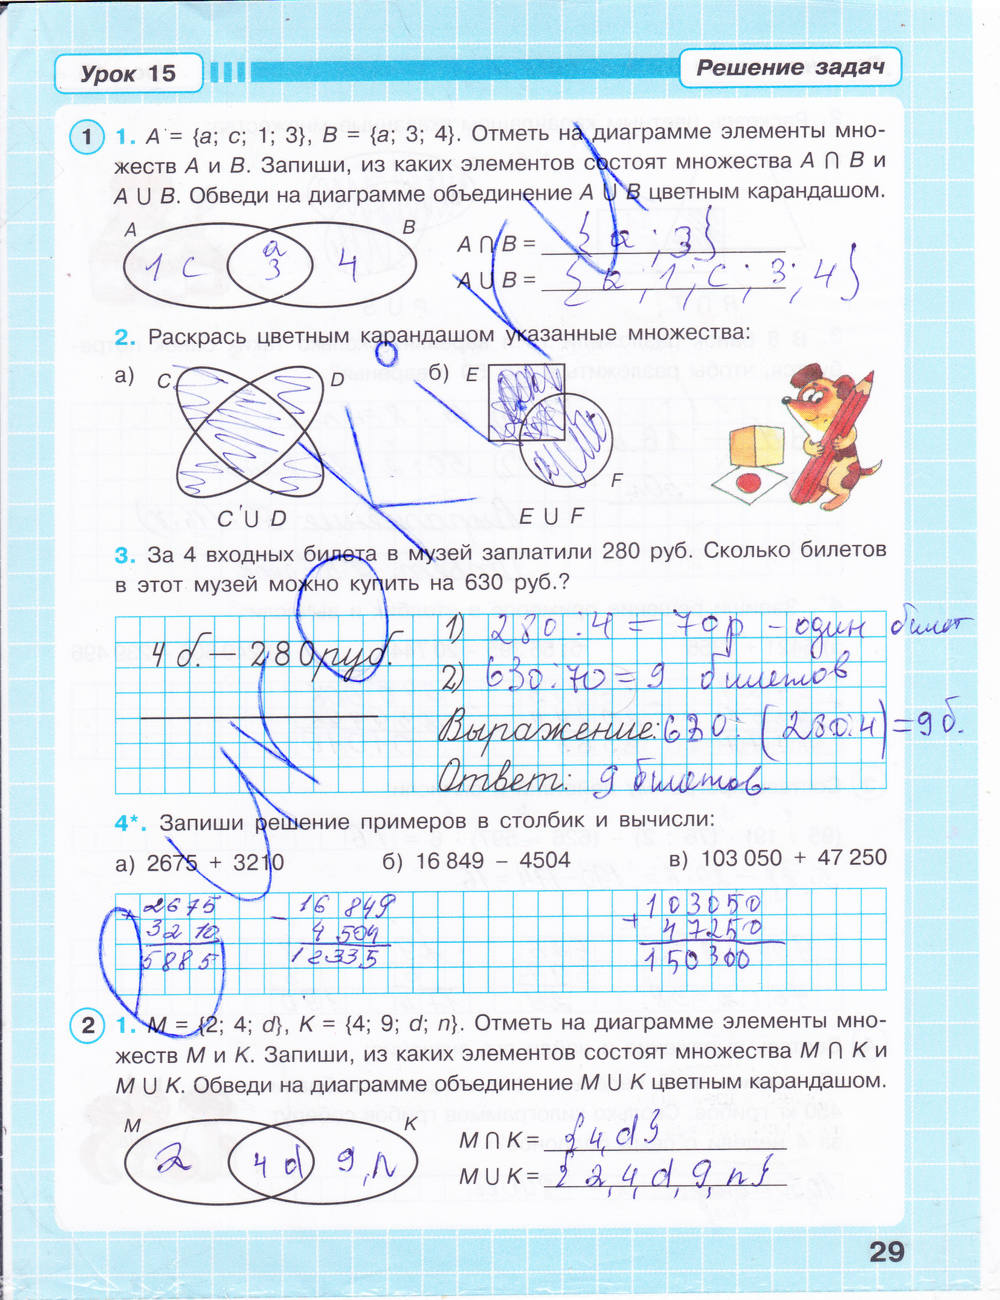 Урок 15
Решение задач
1 1. A = {a; c; 1; 3}, B = {a; 3; 4}. Отметь на диаграмме элементы мно-
жеств A и B. Запиши, из каких элементов состоят множества A ∩ B и
A ∪ B. Обведи на диаграмме объединение A ∪ B цветным карандашом.
A B
1 c a 3 4
A ∩ B = {a; 3}
A ∪ B = {a; 1; c; 3; 4}
2. Раскрась цветным карандашом указанные множества:
а) C D б) E F
C ∪ D E ∪ F
3. За 4 входных билета в музей заплатили 280 руб. Сколько билетов
в этот музей можно купить на 630 руб.?
4 б. – 280 руб.
1) 280 : 4 = 70 р – один билет
2) 630 : 70 = 9 билетов
Выражение: 630 : (280:4) = 9 б.
Ответ: 9 билетов
4*. Запиши решение примеров в столбик и вычисли:
а) 2675 + 3210 б) 16 849 – 4504 в) 103 050 + 47 250
+ 2675
3210
5885
– 16 849
4 504
12335
+ 103050
47250
150300
2 1. M = {2; 4; d}, K = {4; 9; d; n}. Отметь на диаграмме элементы мно-
жеств M и K. Запиши, из каких элементов состоят множества M ∩ K и
M ∪ K. Обведи на диаграмме объединение M ∪ K цветным карандашом.
M K
2 4 d 9, n
M ∩ K = {4, d}
M ∪ K = {2, 4, d, 9, n}
29